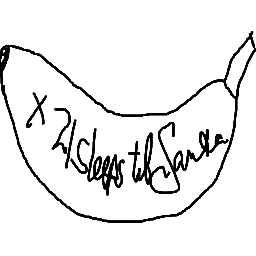 x 21 sleeps til Santa